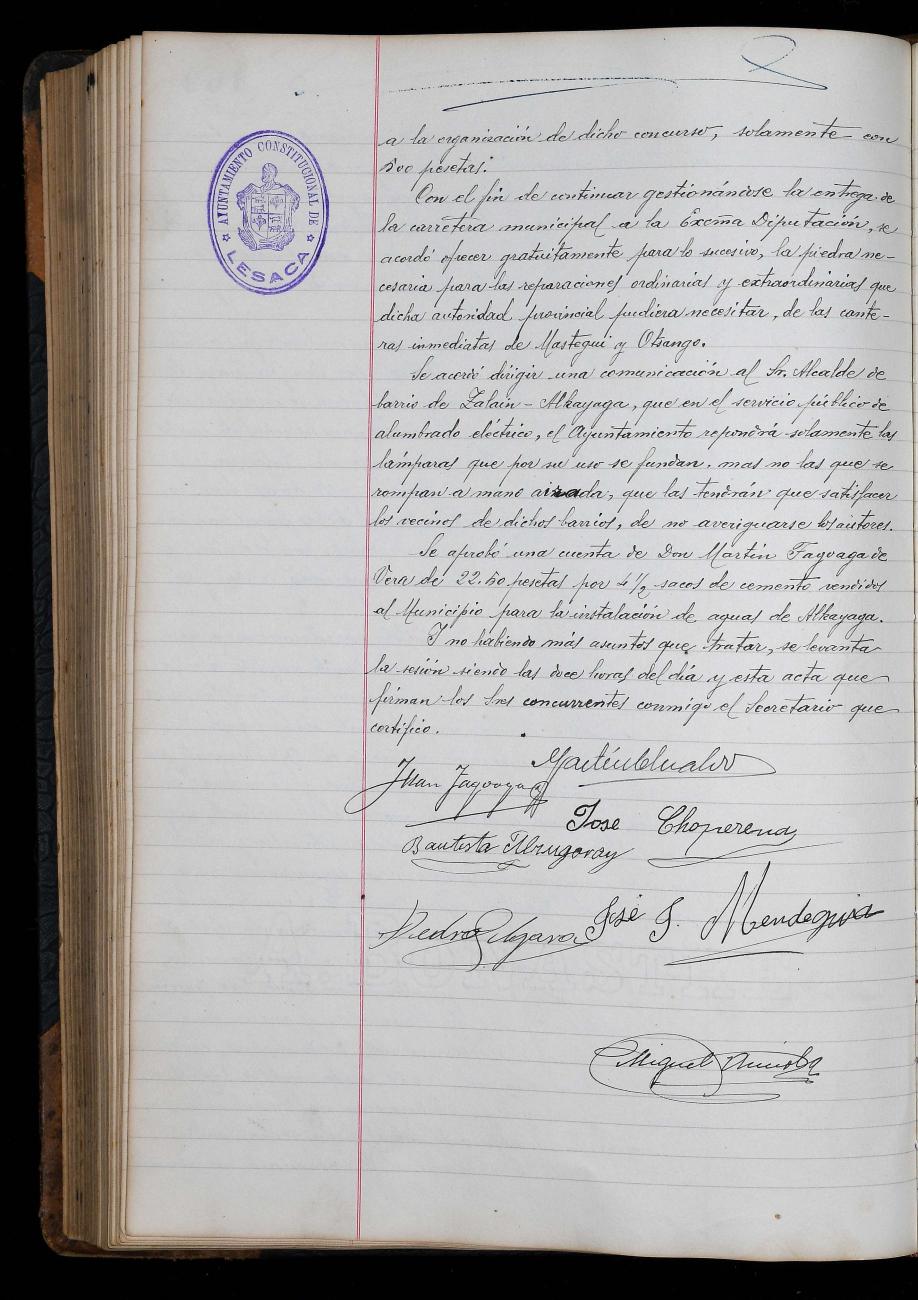 AYUNTAMIENTO CONSTITUCIONAL DE
LESACA
a la organización de dicho concurso, solamente con
500 pesetas.
Con el fin de continuar gestionándose la entrega de
la carretera municipal a la Excma Diputación, se
acordó ofrecer gratuitamente para lo sucesivo, la piedra ne-
cesaria para las reparaciones ordinarias y extraordinarias que
dicha autoridad provincial pudiera necesitar, de las cante-
ras inmediatas de Mastegui y Otsango.
Se acordó dirigir una comunicación al Sr. Alcalde de
barrio de Zalain-Alkayaga, que en el servicio público de
alumbrado eléctrico, el Ayuntamiento repondrá solamente las
lámparas que por su uso se fundan, mas no las que se
rompan a mano airada, que las tendrán que satisfacer
los vecinos de dichos barrios, de no averiguarse los autores.
Se aprobó una cuenta de Don Martin Fagoaga de
Vera de 22.50 pesetas por 4 1/2 sacos de cemento vendidos
al Municipio para la instalación de aguas de Alkayaga.
Y no habiendo más asuntos que tratar, se levanta
la sesión siendo las doce horas del día y esta acta que
firman los Sres concurrentes conmigo el Secretario que
certifico.
Juan Fagoaga
José Choperena
Bautista
Pedro
José J. Mendeguia
Miguel